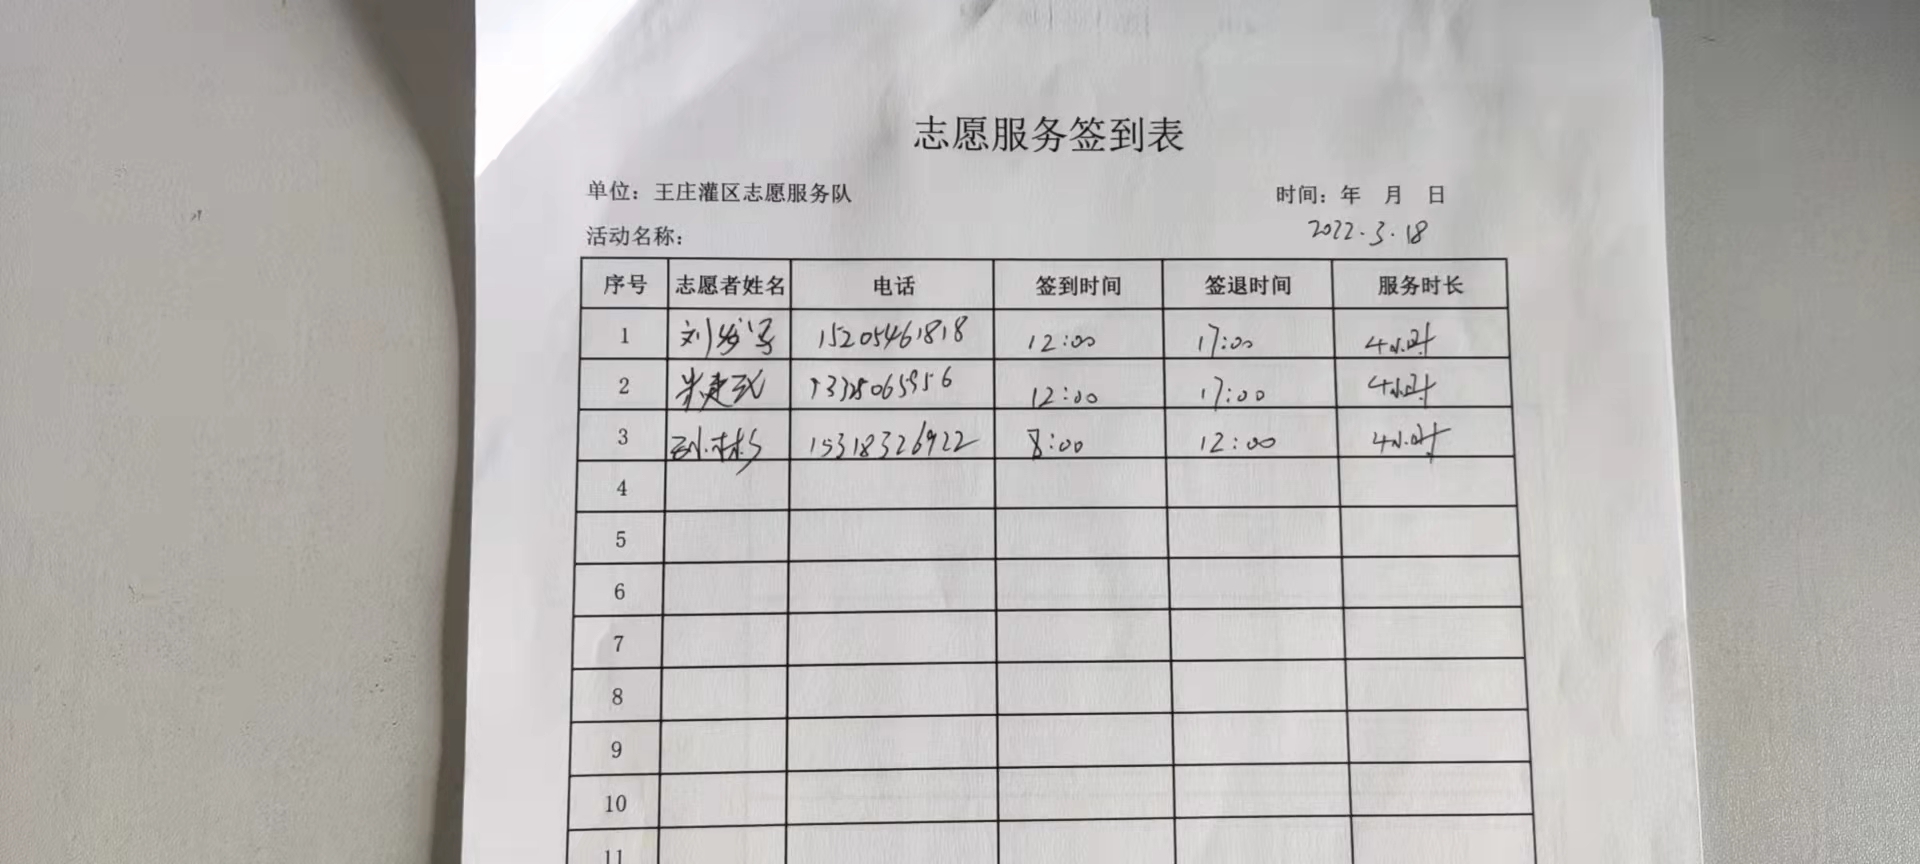 志愿服务签到表
单位：王庄灌区志愿服务队 时间：年 月 日
活动名称： 2022.3.18
序号 志愿者姓名 电话 签到时间 签退时间 服务时长
1 15205461818 12:00 17:00 4小时
2 12:00 17:00 4小时
3 15318326922 8:00 12:00 4小时
4
5
6
7
8
9
10
11